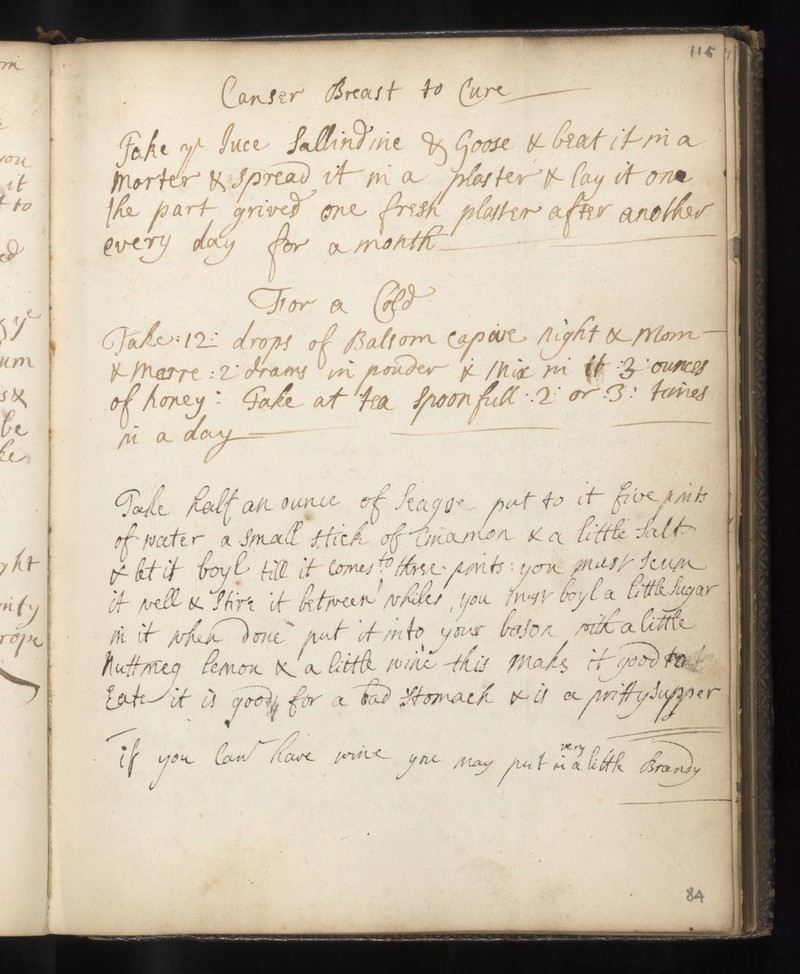 115
Canser Breast to Cure
Take ye Juce Sallindine & Goose & beat it in a
morter & spread it in a plaster & lay it one
the part grived one fresh plaster after another
every day for a month
For a Cold
Take :12: drops of Balsom capive night & Morn
& :2: drams in pouder & Mix in it :3: ounces
of honey: Take at tea spoonfull :2: or :3: times
in a day
Take half an ounce of Seagoe put to it five pints
of water a small stick of Cinamon & a little Salt
& let it boyl till it comes to three pints: you must scum
it well & Stire it between whiles, you must boyl a little Sugar
in it when done put it into your bason with a little
Nuttmeg lemon & a little wine this maks it good to
Eate it is good for a bad Stomach & is a pritty supper
if you Cant have wine you may put in a very little Brandy
84
om
you
it
t to
ed
ye
um
s &
be
ke
ght
nity
rope